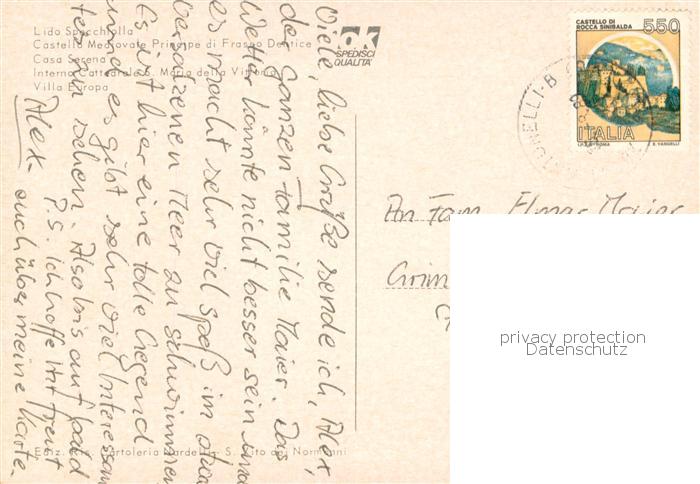 Lido Specchiolla
Castello Medioevale Principe di Frasso Dentice
Casa Serena
Interno Cattedrale S. Maria della Vittoria
Villa Europa
OK
SPEDISCI
QUALITA'
CASTELLO DI
ROCCA SINIBALDA
550
ITALIA
I.P.Z.S. ROMA
E. VANGELLI
Viele, liebe Grüße sende ich, Alex,
der ganzen Familie Maier. Das
Wetter könnte nicht besser sein und
es macht sehr viel Spaß im
Meer zu schwimmen
Es ist hier eine tolle Gegend
und es gibt sehr viel Interessan
tes zu sehen. Also bis auf bald
Alex
P.S. Ich hoffe Ihr freut
euch über meine Karte.
An Fam. Elmar Maier
privacy protection
Datenschutz
Ediz. Ris. Cartoleria Nardelli - S. Vito dei Normanni